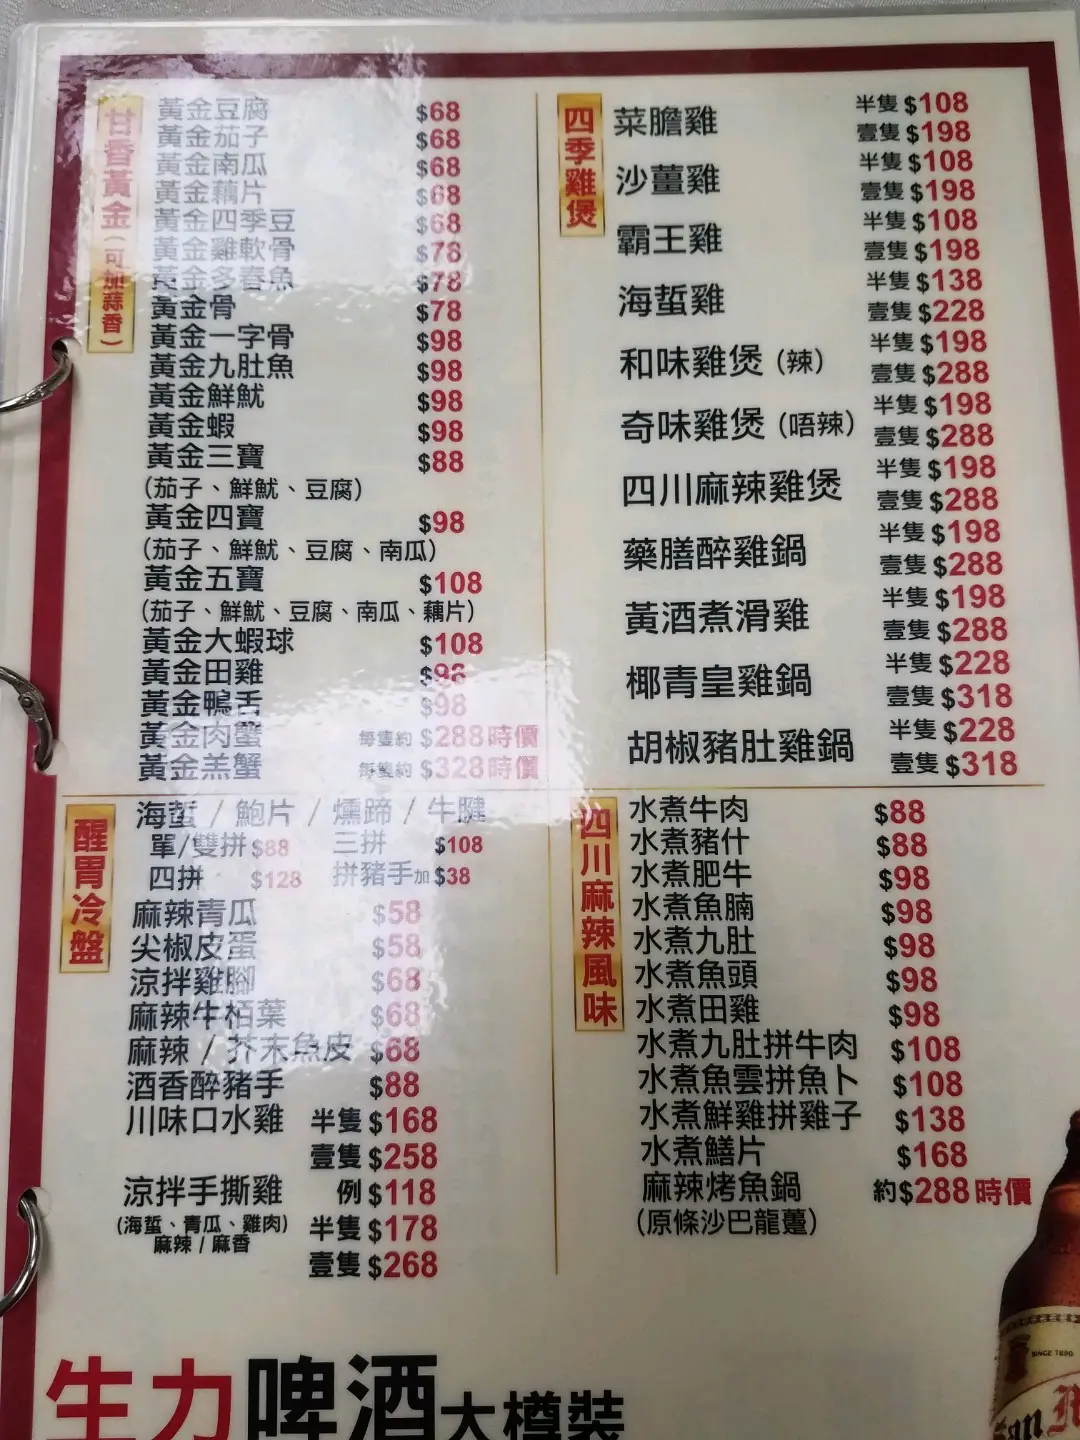 甘香黃金(可加蒜香)
黃金豆腐 $68
黃金茄子 $68
黃金南瓜 $68
黃金藕片 $68
黃金四季豆 $68
黃金雞軟骨 $78
黃金多春魚 $78
黃金骨 $78
黃金一字骨 $98
黃金九肚魚 $98
黃金鮮魷 $98
黃金蝦 $98
黃金三寶 $88
(茄子、鮮魷、豆腐)
黃金四寶 $98
(茄子、鮮魷、豆腐、南瓜)
黃金五寶 $108
(茄子、鮮魷、豆腐、南瓜、藕片)
黃金大蝦球 $108
黃金田雞 $98
黃金鴨舌 $98
黃金肉蟹 每隻約 $288時價
黃金羔蟹 每隻約 $328時價
四季雞煲
菜膽雞 半隻 $108
壹隻 $198
沙薑雞 半隻 $108
壹隻 $198
霸王雞 半隻 $108
壹隻 $198
海蜇雞 半隻 $138
壹隻 $228
和味雞煲(辣) 半隻 $198
壹隻 $288
奇味雞煲(唔辣) 半隻 $198
壹隻 $288
四川麻辣雞煲 半隻 $198
壹隻 $288
藥膳醉雞鍋 半隻 $198
壹隻 $288
黃酒煮滑雞 半隻 $198
壹隻 $288
椰青皇雞鍋 半隻 $228
壹隻 $318
胡椒豬肚雞鍋 半隻 $228
壹隻 $318
醒胃冷盤
海蜇 / 鮑片 / 燻蹄 / 牛腱
單/雙拼 $88 三拼 $108
四拼 $128 拼豬手加 $38
麻辣青瓜 $58
尖椒皮蛋 $58
涼拌雞腳 $68
麻辣牛栢葉 $68
麻辣 / 芥末魚皮 $68
酒香醉豬手 $88
川味口水雞 半隻 $168
壹隻 $258
涼拌手撕雞 例 $118
(海蜇、青瓜、雞肉) 半隻 $178
麻辣 / 麻香
壹隻 $268
四川麻辣風味
水煮牛肉 $88
水煮豬什 $88
水煮肥牛 $98
水煮魚腩 $98
水煮九肚 $98
水煮魚頭 $98
水煮田雞 $98
水煮九肚拼牛肉 $108
水煮魚雲拼魚卜 $108
水煮鮮雞拼雞子 $138
水煮鱔片 $168
麻辣烤魚鍋 約$288時價
(原條沙巴龍躉)
生力啤酒大樽裝
SINCE 1890